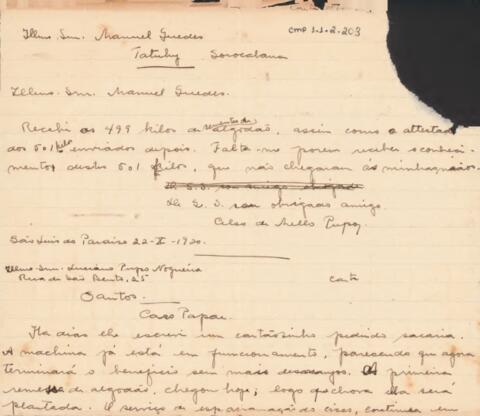 Illmo. Snr. Manuel Guedes
cmp 1.1.2.203
Tatuhy Sorocabana
Illmo. Snr. Manuel Guedes.
Recebi os 499 kilos de semente de algodão, assim como o attestado
dos 601 kilo enviados depois. Falta-me porem receber o conheci-
mento destes 601 kilos, que não chegaram ás minhas mãos.
De V. S. seu amigo obrigado
De V. S. seu obrigado amigo.
Celso de Mello Pupo,
São Luis do Paraiso 22-X-1920.
Illmo. Snr. Luciano Pupo Nogueira
Rua de São Bento, 25 carta
Santos.
Caro Papae.
Ha dias lhe escrevi um cartãosinho pedindo sacaria.
A machina já está em funccionamento, parecendo que agora
terminará o beneficio sem mais desarranjos. A primeira
remessa de algodão, chegou hoje; logo que chova ella será
plantada. O serviço de esparramação de cisco, continua em